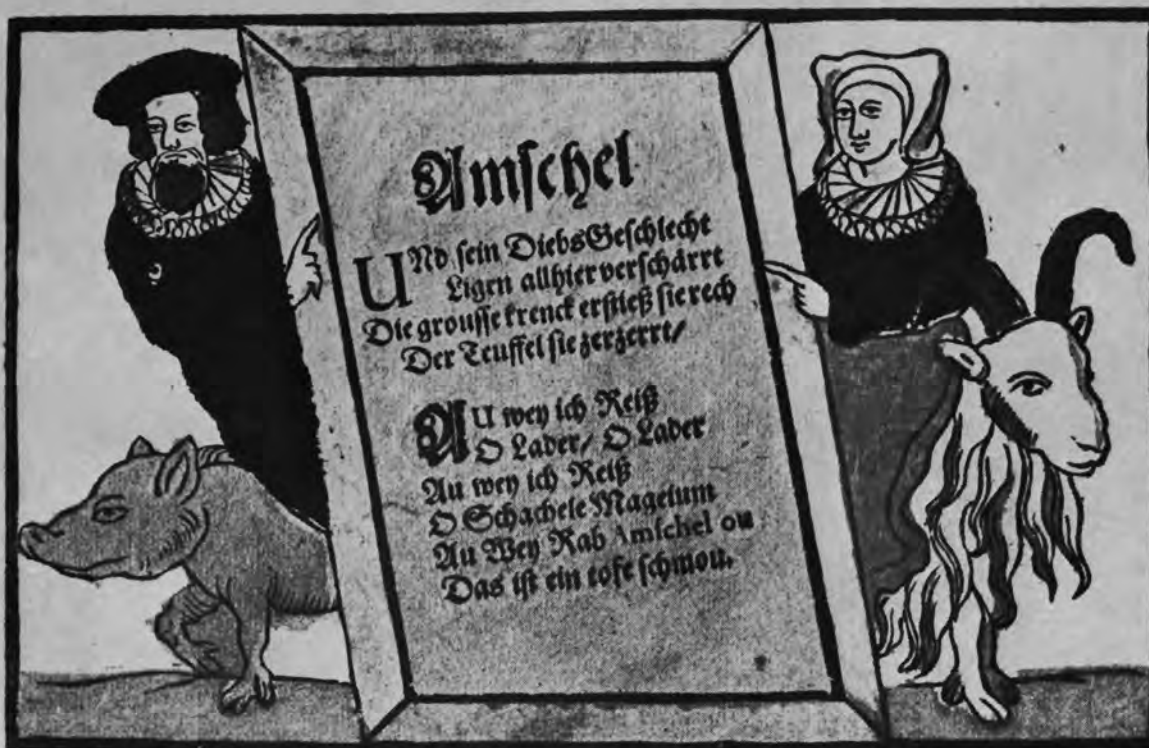 Amſchel
UNd ſein DiebsGeſchlecht
Ligen allhier verſchärrt
Die grouſſe krenck erſtieß ſie rech
Der Teuffel ſie zerzerrt/
AU wey ich Reiß
O Lader/ O Lader
Au wey ich Reiß
O Schachele Magelum
Au Wey Rab Amſchel ou
Das iſt ein toſe ſchmou.